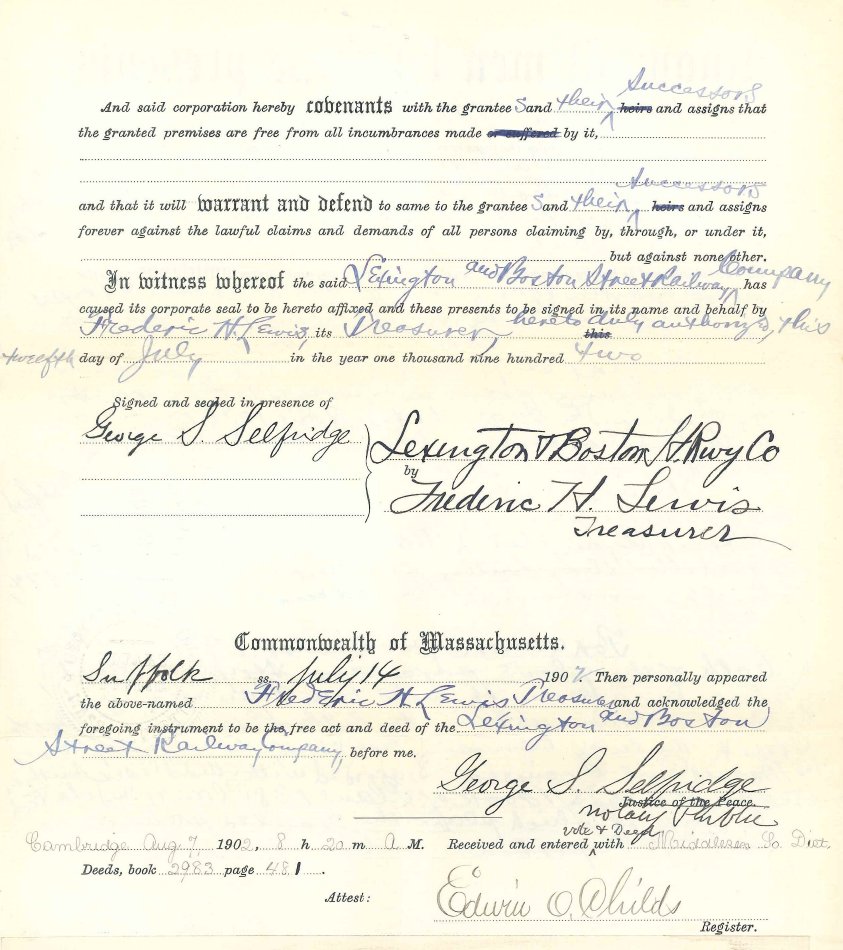 Successors
And said corporation hereby covenants with the grantee s and their heirs and assigns that
the granted premises are free from all incumbrances made or suffered by it,
Successors
and that it will warrant and defend to same to the grantee s and their heirs and assigns
forever against the lawful claims and demands of all persons claiming by, through, or under it,
but against none other.
In witness whereof the said Lexington and Boston Street Railway Company has
caused its corporate seal to be hereto affixed and these presents to be signed in its name and behalf by
Frederic H. Lewis, its Treasurer, hereto duly this this
twelfth day of July in the year one thousand nine hundred two
Signed and sealed in presence of
George S. Selfridge
Lexington & Boston St. Rwy Co
by
Frederic H. Lewis
Treasurer
Commonwealth of Massachusetts.
Suffolk ss. July 14 1902 Then personally appeared
the above-named Frederic H. Lewis Treasurer and acknowledged the
foregoing instrument to be the free act and deed of the Lexington and Boston
Street Railway Company, before me.
George S. Selfridge
Justice of the Peace.
Notary Public
vote & Deed
Cambridge Aug 7, 1902, 8 h 20 m A M. Received and entered with Middlesex So Dist.
Deeds, book 2983 page 481.
Attest:
Edwin O. Childs
Register.